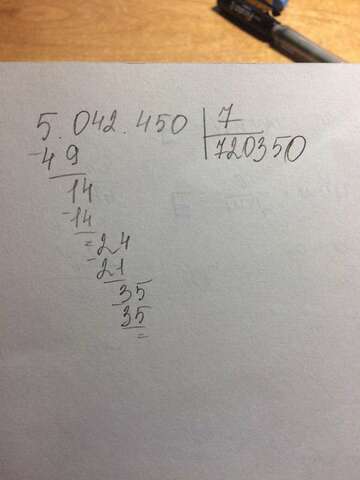 5.042.450 7
-49 720350
14
-14
= 24
-21
35
-35
=